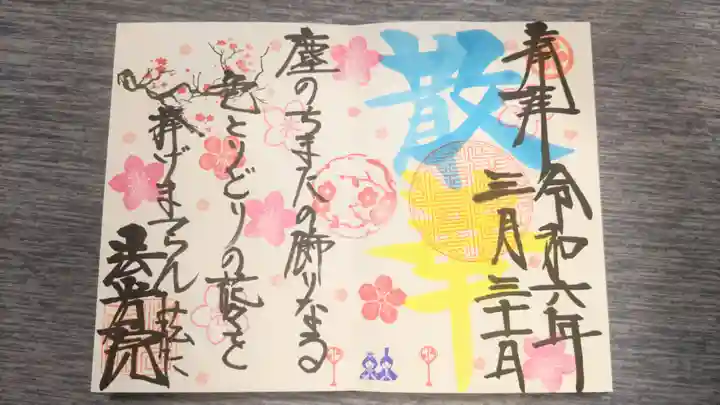 奉拝
令和六年
三月三十一日
散華
塵のちまたの飾りなる
色とりどりの花を
捧げまつらん